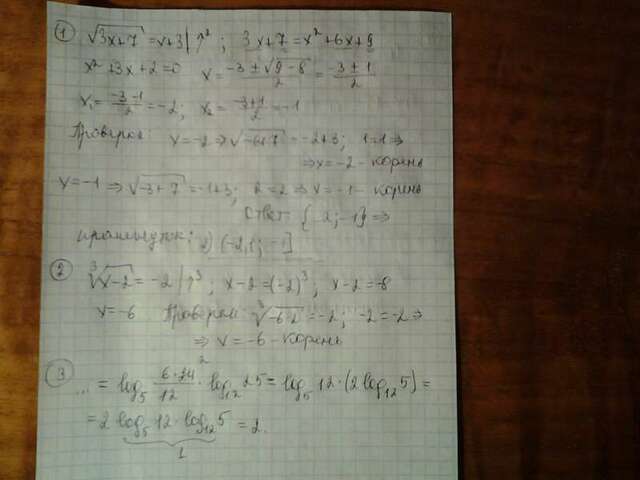 ① √3x+7 = x+3 | ↑² ; 3x+7 = x²+6x+9
x²+3x+2=0 x = (-3 ± √9-8)/2 = (-3 ± 1)/2
x₁ = (-3-1)/2 = -2; x₂ = (-3+1)/2 = -1
Проверка: x=-2 ⇒ √-6+7 = -2+3; 1=1 ⇒
⇒ x=-2 - корень
x=-1 ⇒ √-3+7 = -1+3; 2=2 ⇒ x=-1 - корень
Ответ {-2; -1} ⇒
промежуток: 2) (-2,1; -1]
② ∛x-2 = -2 | ↑³ ; x-2=(-2)³ ; x-2=-8
x=-6 Проверка: ∛-6-2 = -2; -2=-2 ⇒
⇒ x=-6 - корень
③ ... = log₅ (6·24)/12 · log₁₂ 25 = log₅ 12·(2 log₁₂ 5) =
= 2 log₅ 12 · log₁₂ 5 = 2.
1